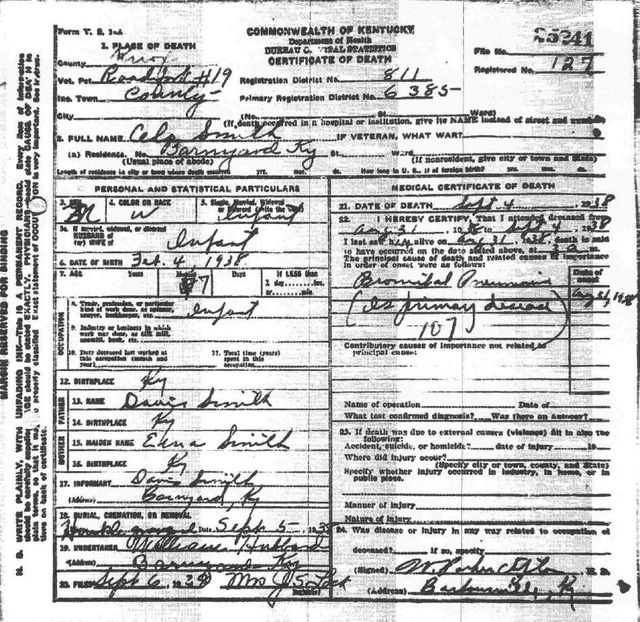 Form V. S. 1-A
COMMONWEALTH OF KENTUCKY
Department of Health
BUREAU OF VITAL STATISTICS
CERTIFICATE OF DEATH
File No. 25241
Registered No. 127
1. PLACE OF DEATH
County Knox
Vot. Pct. Road Fork #19
Registration District No. 811
Inc. Town County
Primary Registration District No. 6385
City (No. St. Ward)
(If death occurred in a hospital or institution, give its NAME instead of street and number)
2. FULL NAME Smith IF VETERAN, WHAT WAR?
(a) Residence. No. Barnyard Ky St. Ward
(Usual place of abode) (If nonresident, give city or town and State)
Length of residence in city or town where death occurred yrs. mos. ds. How long in U. S., if of foreign birth? yrs. mos. ds.
PERSONAL AND STATISTICAL PARTICULARS
3. SEX M
4. COLOR OR RACE W
5. Single, Married, Widowed or Divorced (write the word) Infant
5a. If married, widowed, or divorced
HUSBAND of
(or) WIFE of Infant
6. DATE OF BIRTH Feb. 4 1938
7. AGE Years Months 7 Days If LESS than
1 day hrs.
or min.
OCCUPATION
8. Trade, profession, or particular
kind of work done, as spinner,
sawyer, bookkeeper, etc. Infant
9. Industry or business in which
work was done, as silk mill,
sawmill, bank, etc.
10. Date deceased last worked at
this occupation (month and
year)
11. Total time (years)
spent in this
occupation
12. BIRTHPLACE Ky
FATHER
13. NAME Davis Smith
14. BIRTHPLACE Ky
MOTHER
15. MAIDEN NAME Edna Smith
16. BIRTHPLACE Ky
17. INFORMANT Davis Smith
(Address) Barnyard, Ky
18. BURIAL, CREMATION, OR REMOVAL
Place Date Sept 5- 1938
19. UNDERTAKER William
(Address) Barnyard Ky
20. FILED Sept 6, 1938 Mrs J
MEDICAL CERTIFICATE OF DEATH
21. DATE OF DEATH Sept 4, 1938
22. I HEREBY CERTIFY, That I attended deceased from
Aug 31 1938 to Sept 4, 1938
I last saw him alive on Aug 31 1938, death is said
to have occurred on the date stated above, at m.
The principal cause of death and related causes of importance
in order of onset were as follows:
Date of onset
Bronchial Pneumonia
Aug 31, 1938
(Is primary disease)
107
Contributory causes of importance not related to
principal cause:
Name of operation Date of
What test confirmed diagnosis? Was there an autopsy?
23. If death was due to external causes (violence) fill in also the
following:
Accident, suicide, or homicide? date of injury 19
Where did injury occur?
(Specify city or town, county, and State)
Specify whether injury occurred in industry, in home, or in
public place.
Manner of injury
Nature of injury
24. Was disease or injury in any way related to occupation of
deceased? If so, specify
(Signed) M. D.
(Address) Barbourville, Ky.
MARGIN RESERVED FOR BINDING
N. B. WRITE PLAINLY, WITH UNFADING INK—THIS IS A PERMANENT RECORD. Every item of information
should be carefully supplied. AGE should be stated EXACTLY. PHYSICIANS should state CAUSE OF DEATH in
plain terms, so that it may be properly classified. Exact statement of OCCUPATION is very important. See instructions
on back of certificate.